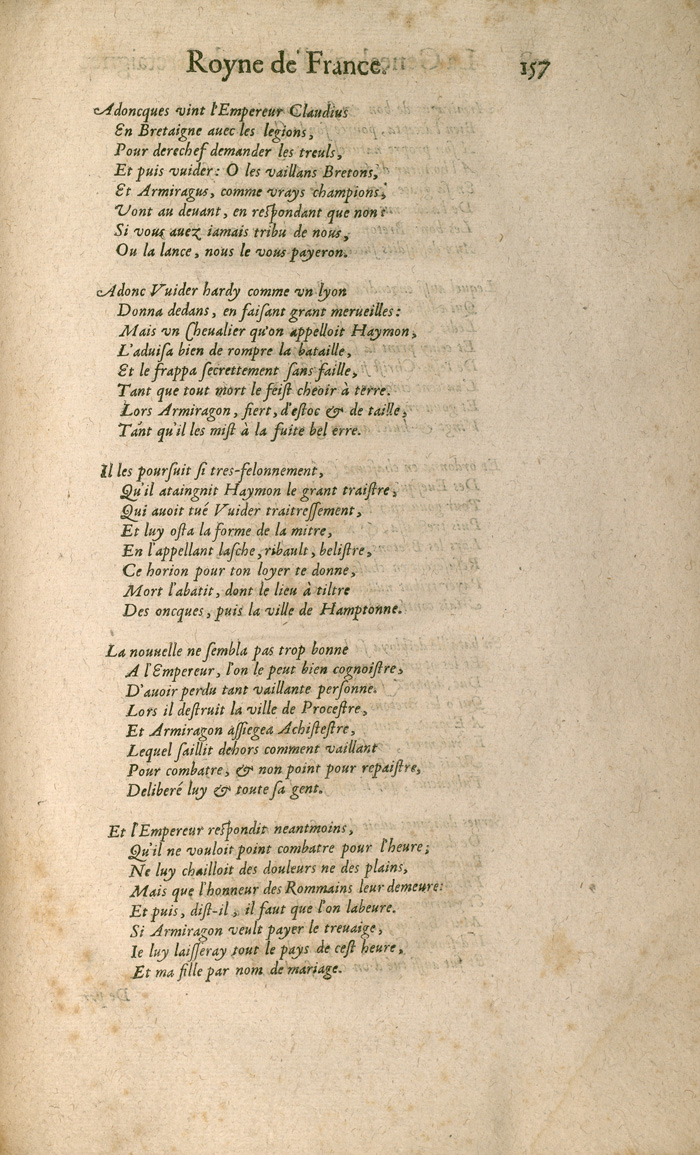 Royne de France. 157
Adoncques vint l'Empereur Claudius
En Bretaigne auec les legions,
Pour derechef demander les treuls,
Et puis vuider: O les vaillans Bretons,
Et Armiragus, comme vrays champions,
Vont au deuant, en reſpondant que non:
Si vous auez iamais tribu de nous,
Ou la lance, nous le vous payeron.
Adonc Vuider hardy comme vn lyon
Donna dedans, en faiſant grant merueilles:
Mais vn Cheualier qu'on appelloit Haymon,
L'aduiſa bien de rompre la bataille,
Et le frappa ſecrettement ſans faille,
Tant que tout mort le feiſt cheoir à terre.
Lors Armiragon, fiert, d'eſtoc & de taille,
Tant qu'il les miſt à la fuite bel erre.
Il les pourſuit ſi tres-felonnement,
Qu'il ataingnit Haymon le grant traiſtre,
Qui auoit tué Vuider traitreſſement,
Et luy oſta la forme de la mitre,
En l'appellant laſche, ribault, beliſtre,
Ce horion pour ton loyer te donne,
Mort l'abatit, dont le lieu à tiltre
Des oncques, puis la ville de Hamptonne.
La nouuelle ne ſembla pas trop bonne
A l'Empereur, l'on le peut bien cognoiſtre,
D'auoir perdu tant vaillante perſonne.
Lors il deſtruit la ville de Proceſtre,
Et Armiragon aſſiegea Achiſteſtre,
Lequel ſaillit dehors comment vaillant
Pour combatre, & non point pour repaiſtre,
Deliberé luy & toute ſa gent.
Et l'Empereur reſpondit neantmoins,
Qu'il ne vouloit point combatre pour l'heure;
Ne luy chailloit des douleurs ne des plains,
Mais que l'honneur des Rommains leur demeure:
Et puis, diſt-il, il faut que l'on labeure.
Si Armiragon veult payer le treuaige,
Ie luy laiſſeray tout le pays de ceſt heure,
Et ma fille par nom de mariage.